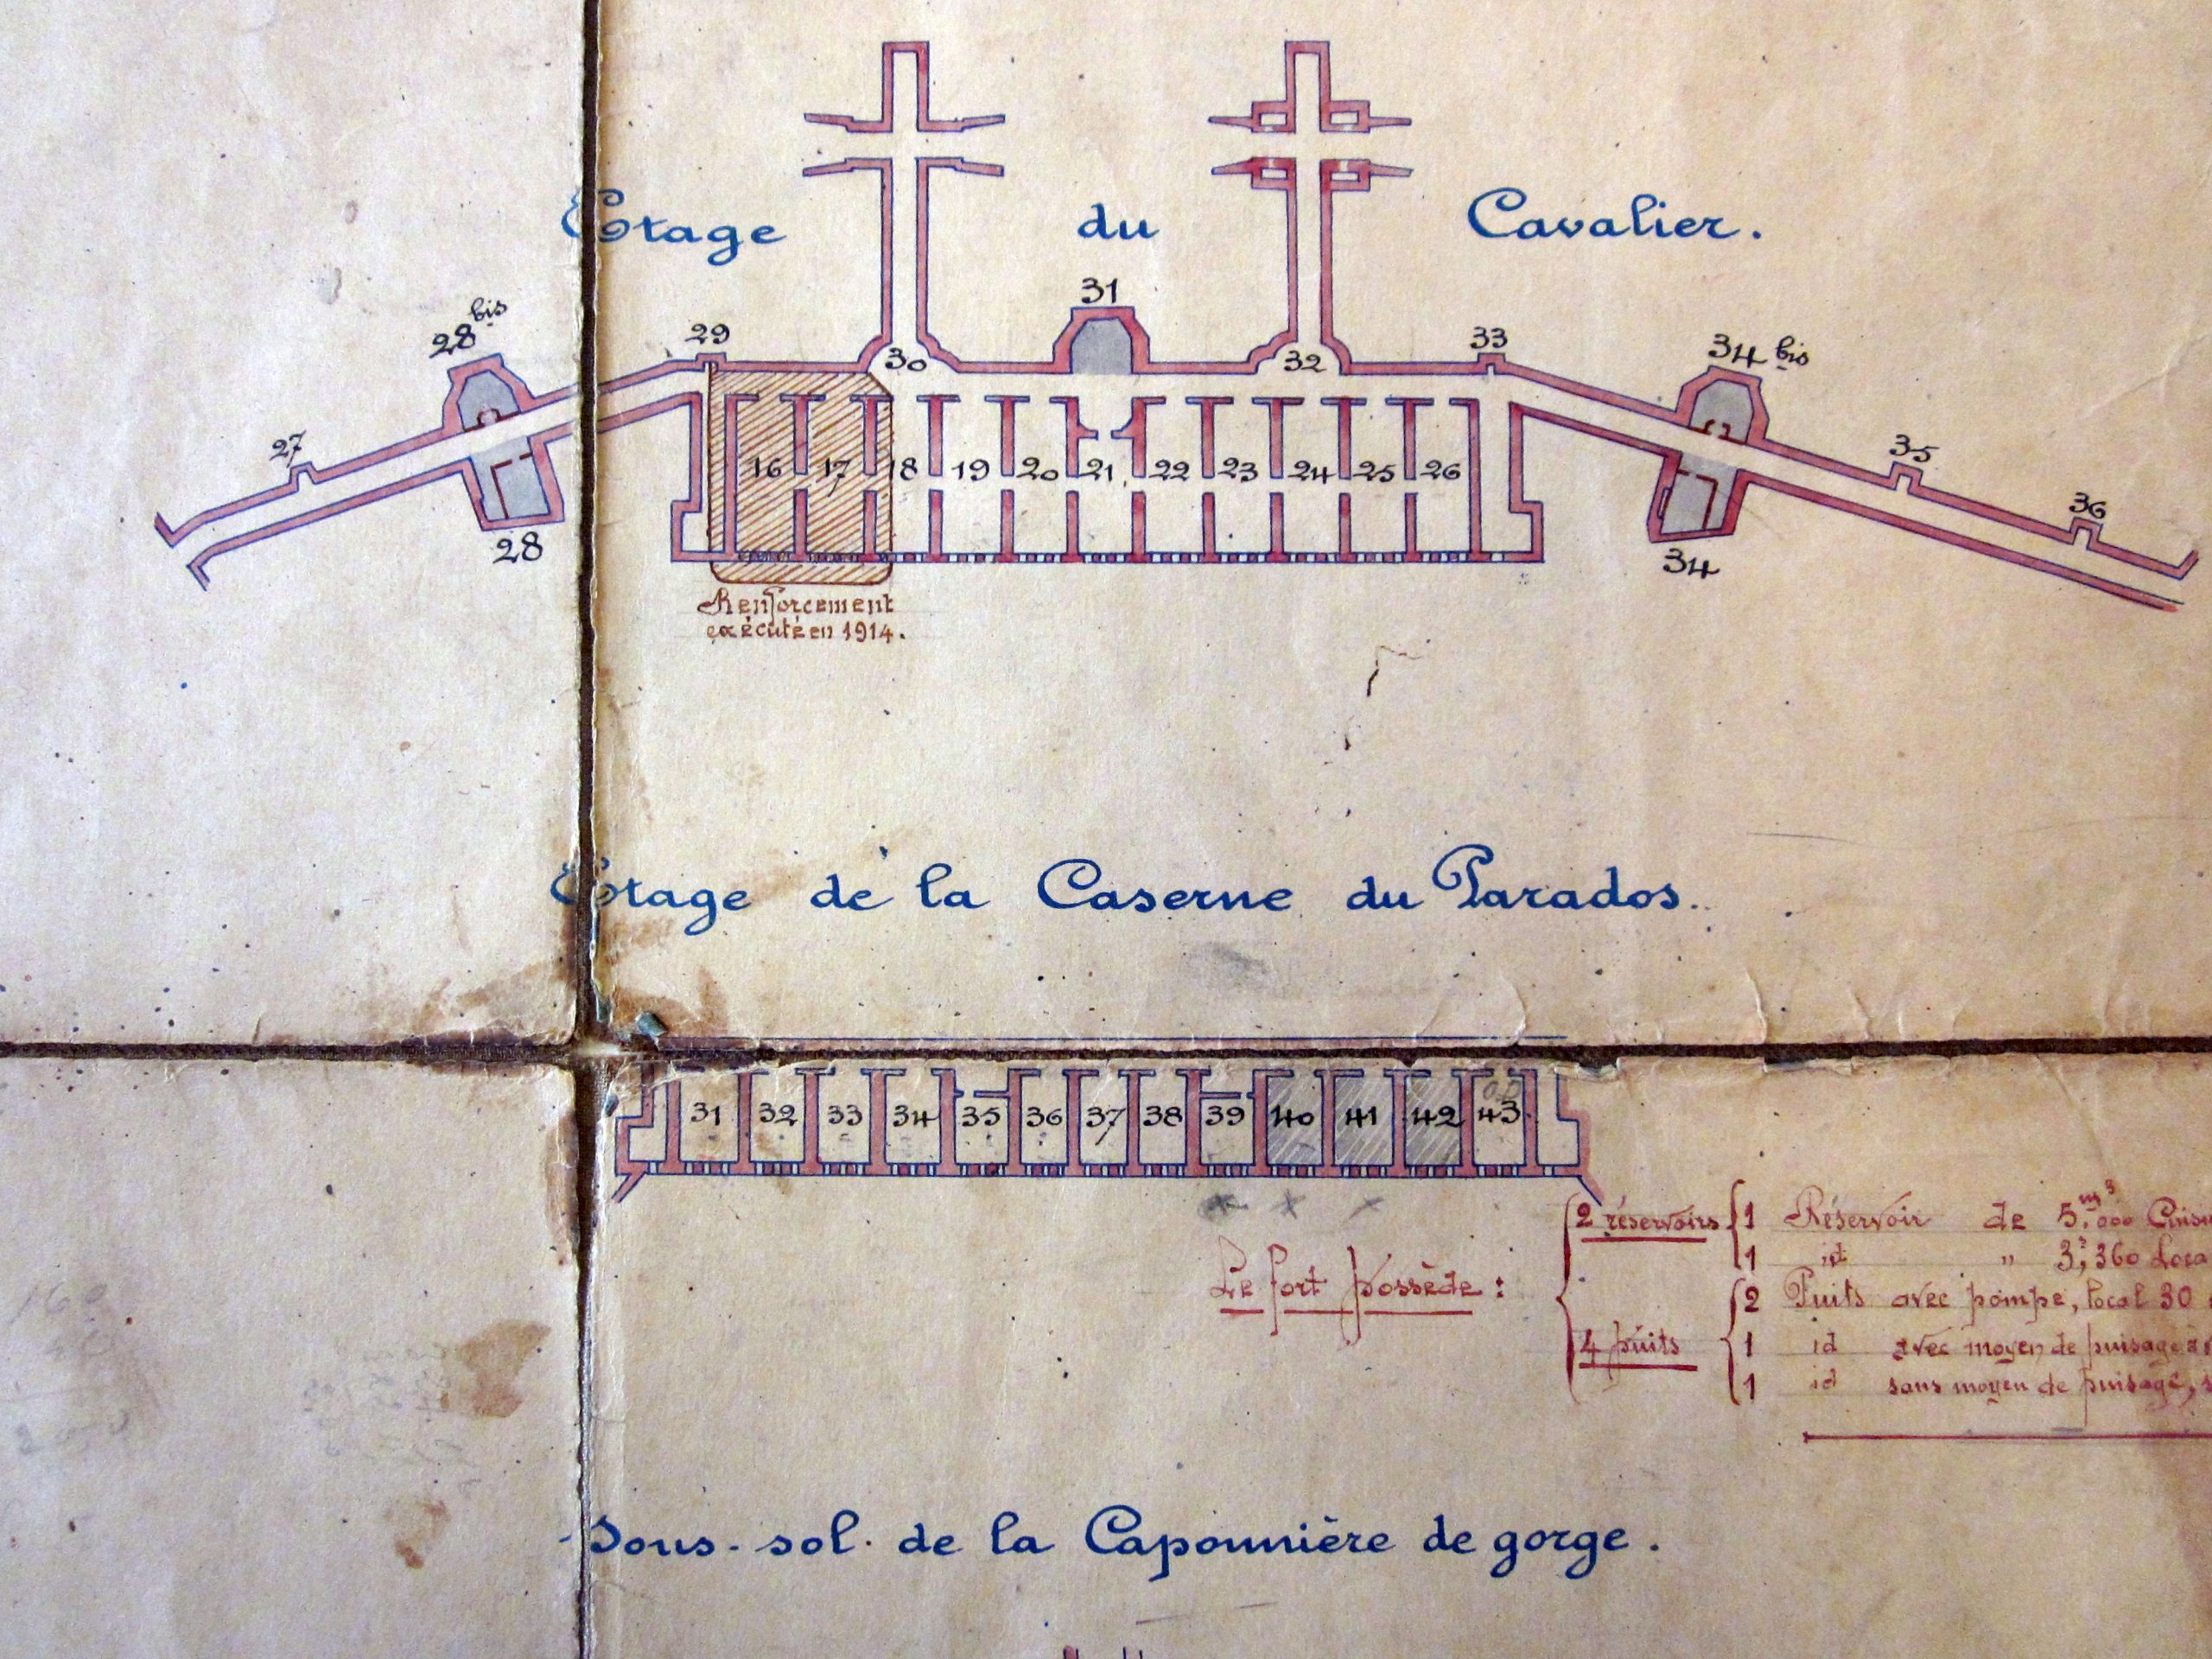 Etage du Cavalier.
31
28 bis
29
33
34 bis
30
32
27
35
36
16 17 18 19 20 21 22 23 24 25 26
28
34
Renforcement
exécuté en 1914.
Etage de la Caserne du Parados.
31 32 33 34 35 36 37 38 39 40 41 42 43
Le fort possède :
2 réservoirs
1 Réservoir de 5,000 m3
1 id " 3,360
4 puits
2 Puits avec pompe, local 30
1 id avec moyen de puisage
1 id sans moyen de puisage,
Sous-sol de la Caponnière de gorge.